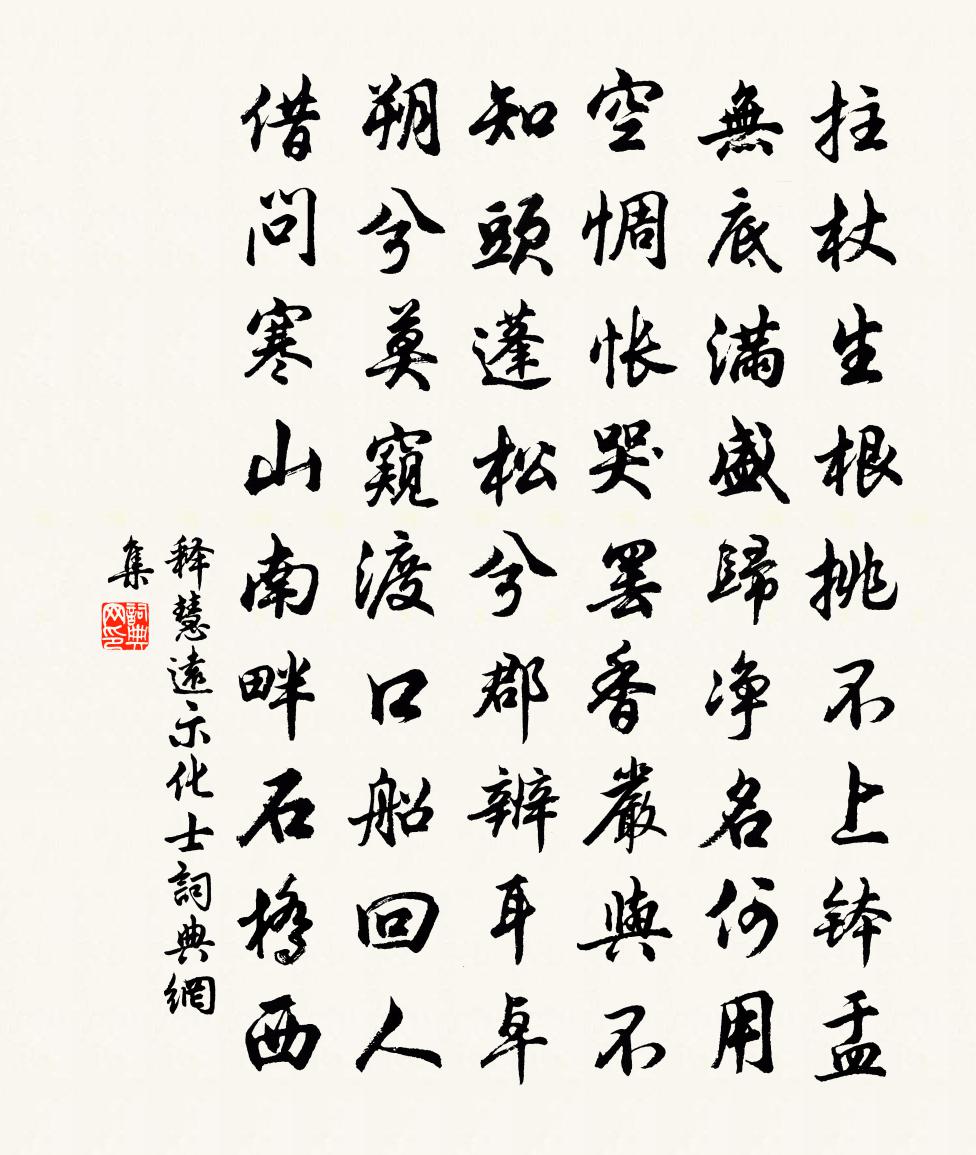 拄杖生根挑不上鉢盂
無底滿盛歸净名何用
空惆悵哭罢香嚴與不
知頭蓬松兮郡辨耳卓
朔兮莫窺渡口船回人
借問寒山南畔石橋西
释慧遠示化士詞典網
集
詞典网印